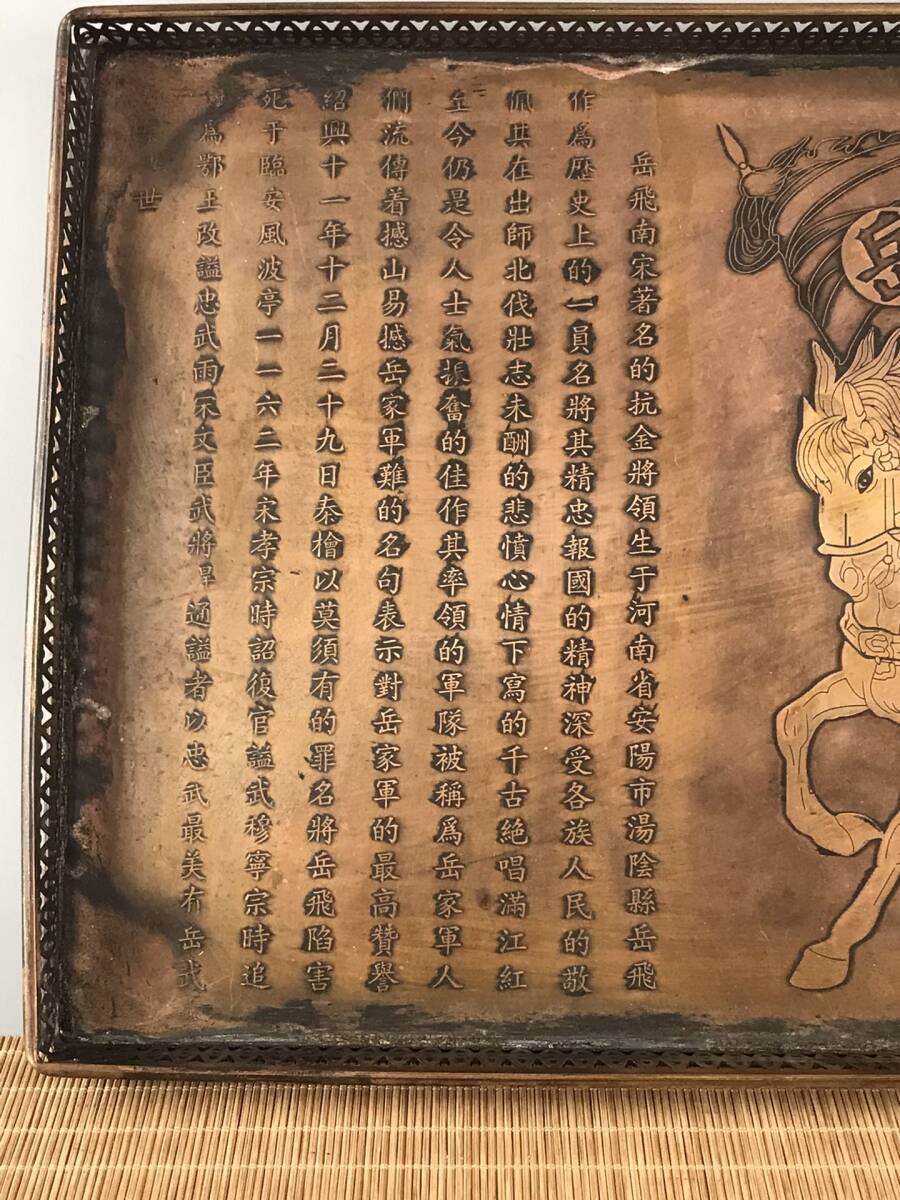 岳飛南宋著名的抗金將領生于河南省安陽市湯陰縣岳飛
作爲歷史上的一員名將其精忠報國的精神深受各族人民的敬
佩其在出師北伐壯志未酬的悲憤心情下寫的千古絕唱滿江紅
至今仍是令人士氣振奮的佳作其率領的軍隊被稱爲岳家軍人
們流傳着撼山易撼岳家軍難的名句表示對岳家軍的最高贊譽
紹興十一年十二月二十九日秦檜以莫須有的罪名將岳飛陷害
死于臨安風波亭一一六二年宋孝宗時詔復官謚武穆寧宗時追
爲鄂王改謚忠武雨宋文臣武將通謚者以忠武最美有岳武
世